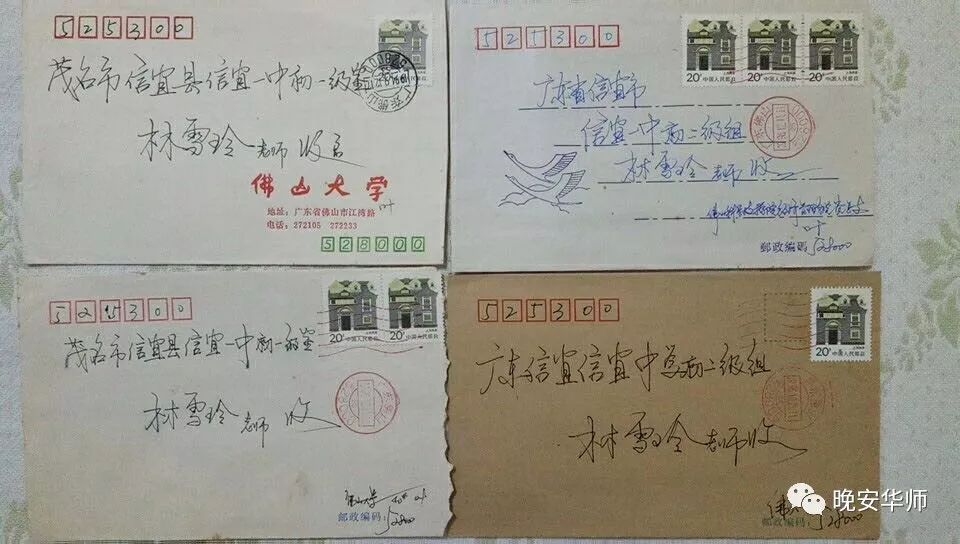 525300
茂名市信宜县信宜一中初一级室
林雪玲老师 收
佛山大学
叶
地址：广东省佛山市江湾路
电话：272105 272233
528000
525300
20分 中国人民邮政
20分 中国人民邮政
20分 中国人民邮政
广东省信宜市
信宜一中初二级组
林雪玲老师收
叶
邮政编码：528000
525300
20分 中国人民邮政
20分 中国人民邮政
茂名市信宜县信宜一中初一级室
林雪玲老师 收
佛山大学
邮政编码：528000
525300
20分 中国人民邮政
广东信宜信宜中学初二级组
林雪玲老师收
邮政编码：528000
晚安华师